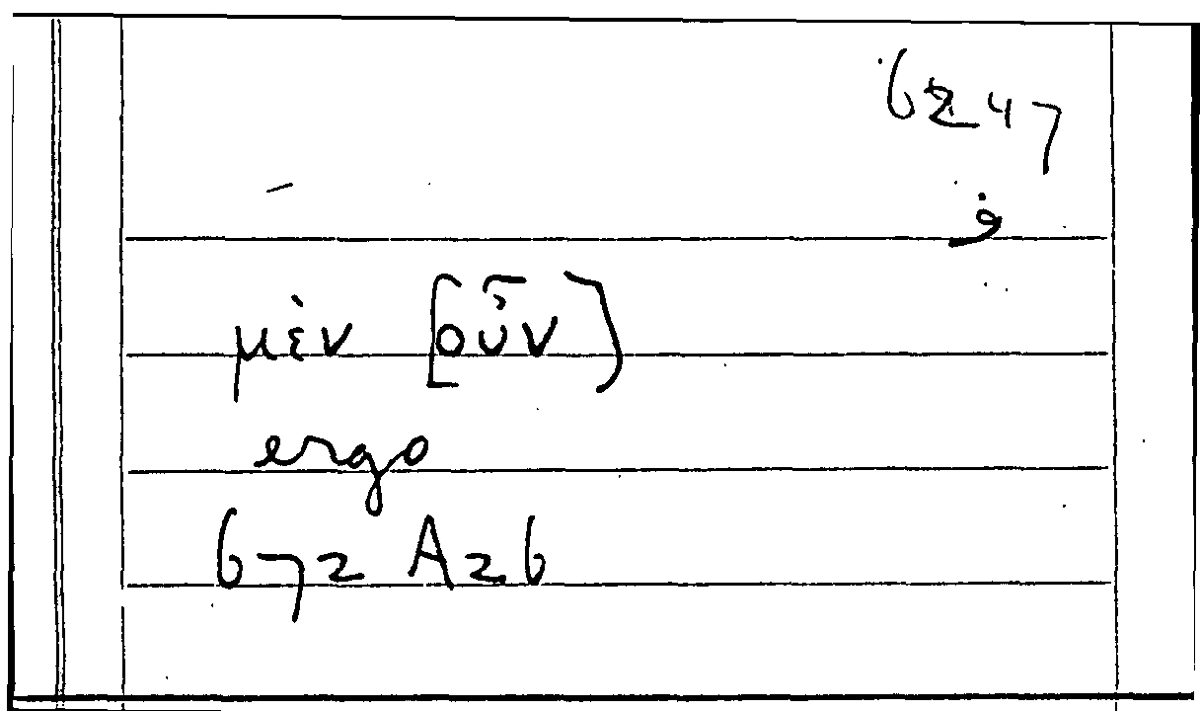 6247
ف
μὲν [οὖν)
ergo
672 A26